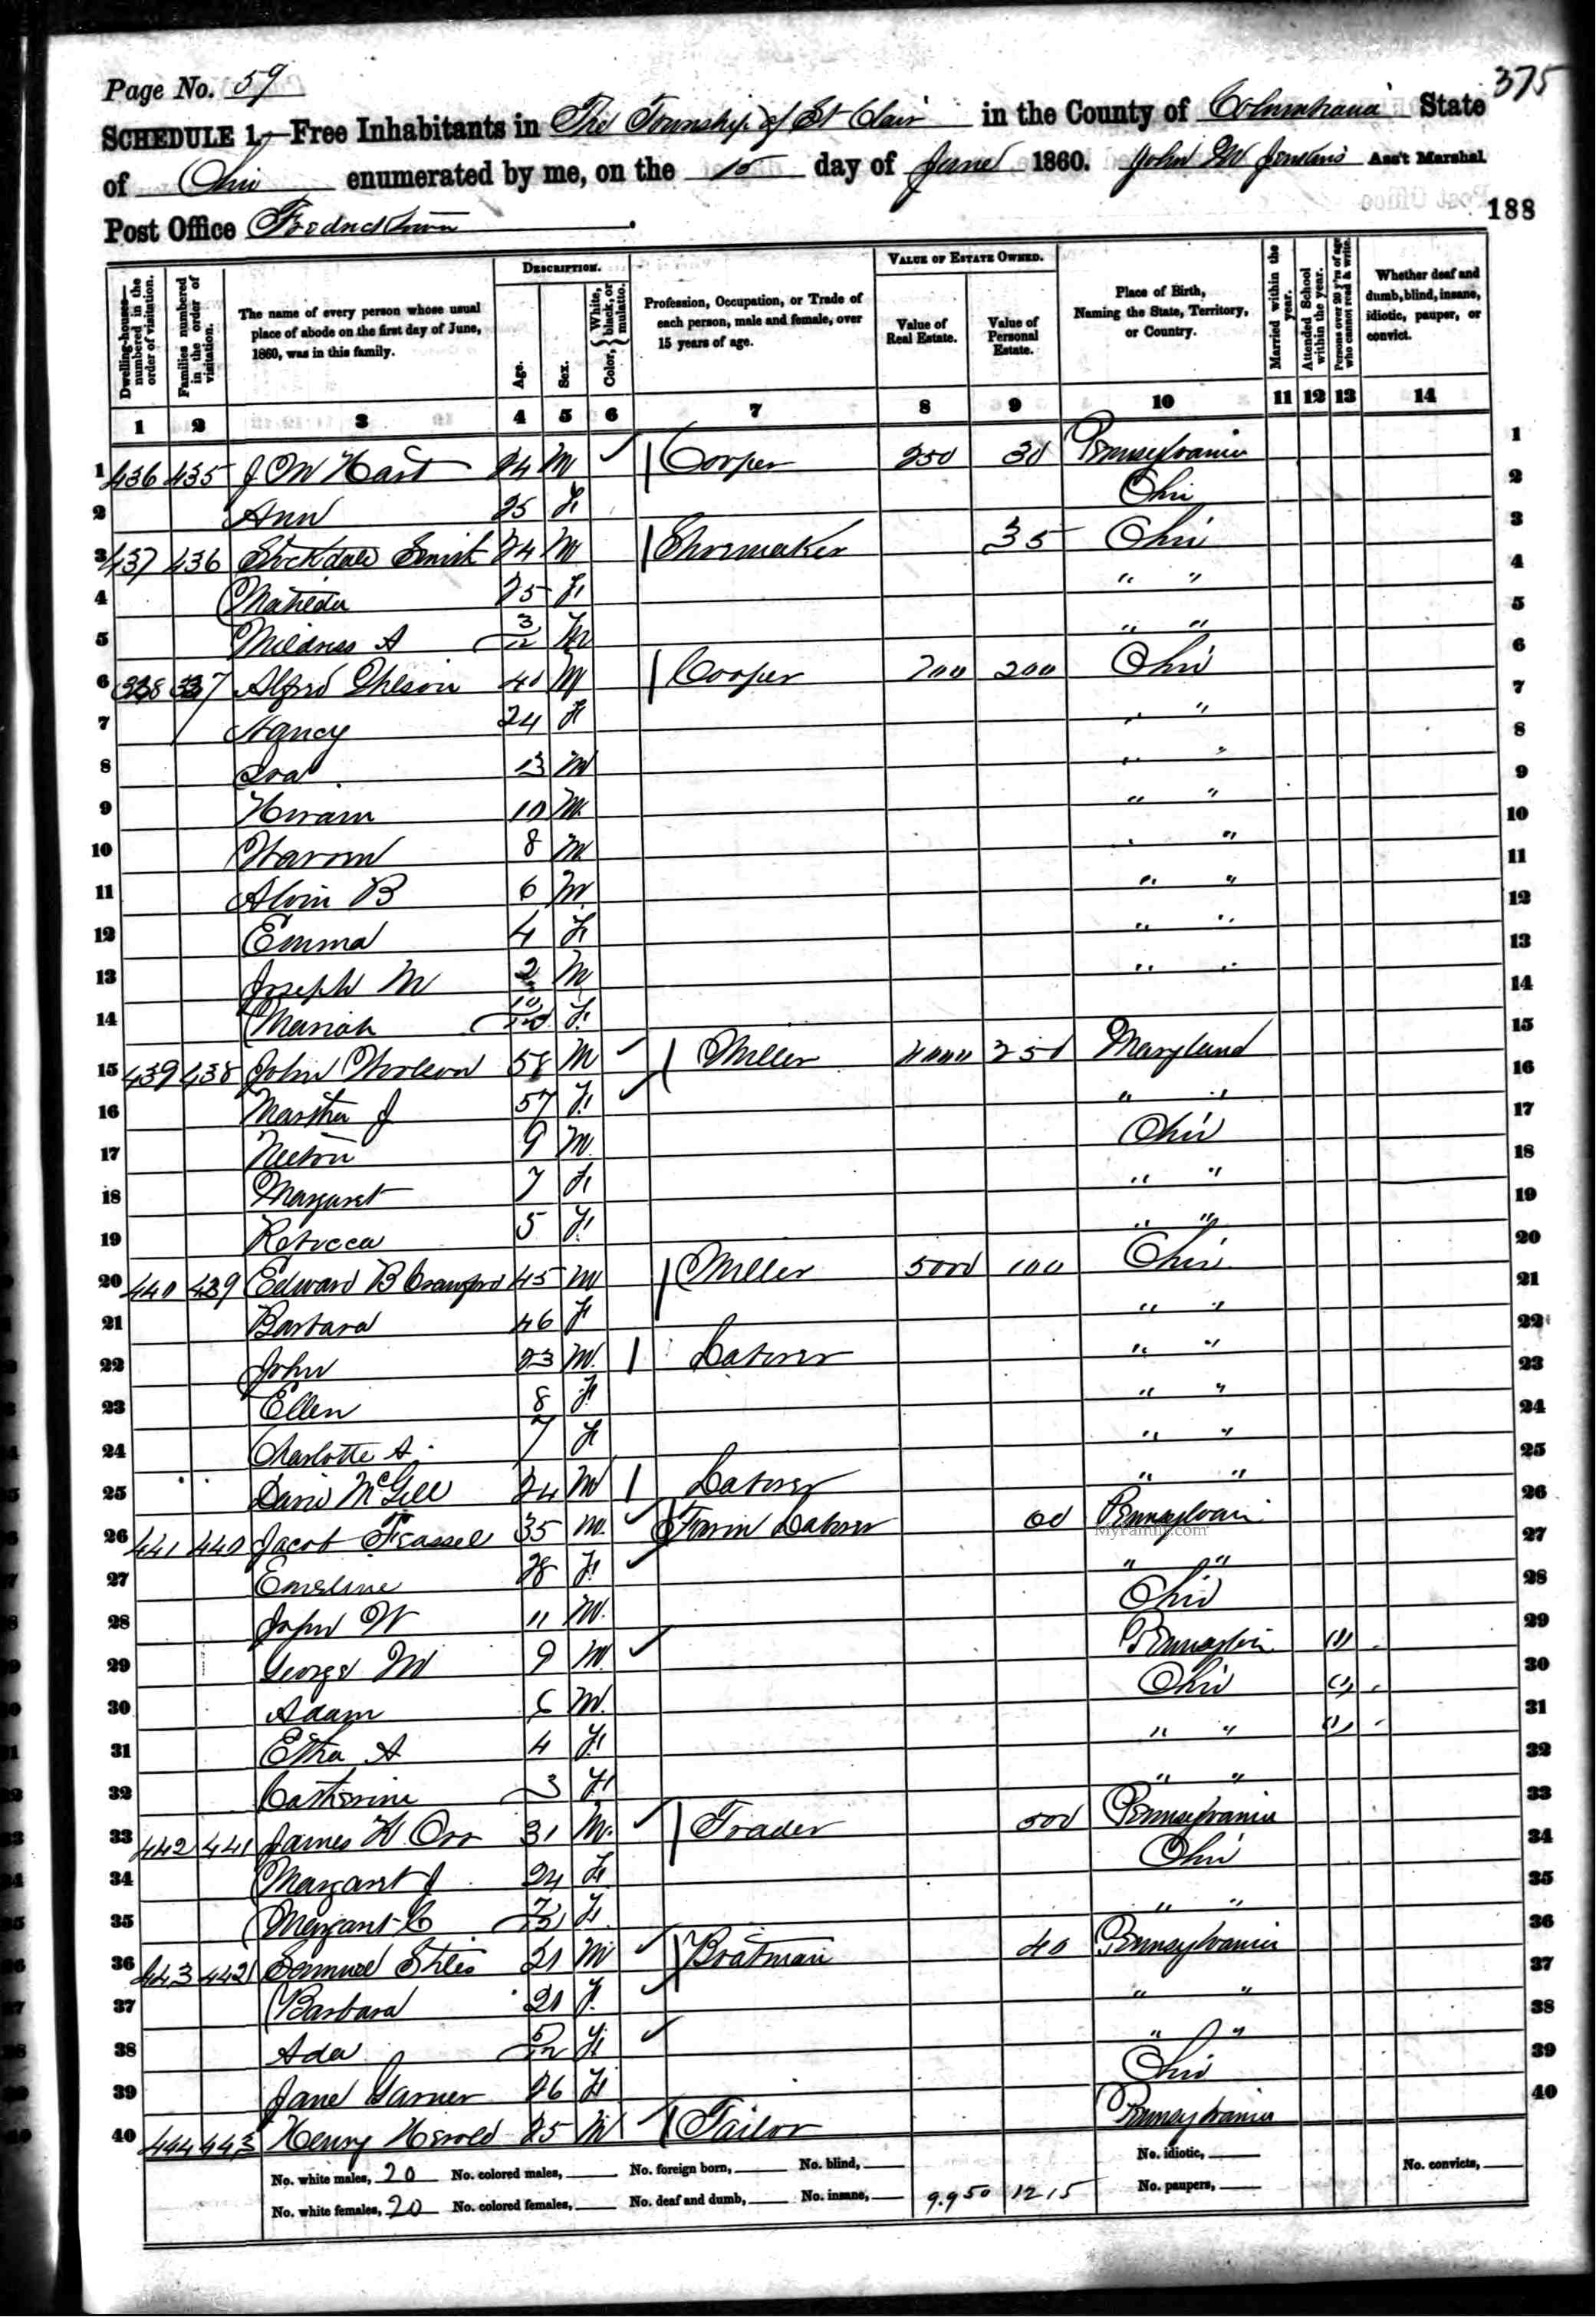 375
Page No. 59
SCHEDULE 1.—Free Inhabitants in The Township of St Clair in the County of Columbiana State
of Ohio enumerated by me, on the 15 day of June 1860. John W Jenkins Ass't Marshal.
Post Office Fredricktown
188
Dwelling-houses—numbered in the order of visitation.
Families numbered in the order of visitation.
The name of every person whose usual place of abode on the first day of June, 1860, was in this family.
DESCRIPTION.
Age.
Sex.
Color, White, black, or mulatto.
Profession, Occupation, or Trade of each person, male and female, over 15 years of age.
VALUE OF ESTATE OWNED.
Value of Real Estate.
Value of Personal Estate.
Place of Birth, Naming the State, Territory, or Country.
Married within the year.
Attended School within the year.
Persons over 20 y'rs of age who cannot read & write.
Whether deaf and dumb, blind, insane, idiotic, pauper, or convict.
1 2 3 4 5 6 7 8 9 10 11 12 13 14
1 436 435 J M Hart 24 M Cooper 250 30 Pennsylvania 1
2 Ann 25 F Ohio 2
3 437 436 Stockdale Smith 24 M Shoemaker 35 Ohio 3
4 Matilda 25 F " " 4
5 A 3/12 " " 5
6 338 337 Alfred 40 M Cooper 700 200 Ohio 6
7 Nancy 24 F " " 7
8 Ira 13 M " " 8
9 Hiram 10 M " " 9
10 8 M " " 10
11 Alvin B 6 M " " 11
12 Emma 4 F " " 12
13 Joseph M 2 M " " 13
14 Mariah 10/12 F 14
15 439 438 John 58 M Miller 4000 250 Maryland 15
16 Martha J 57 F " " 16
17 9 M Ohio 17
18 Margaret 7 F " " 18
19 Rebecca 5 F " " 19
20 440 439 Edward B Crawford 45 M Miller 5000 100 Ohio 20
21 Barbara 46 F " " 21
22 John 23 M Laborer " " 22
23 Ellen 8 F " " 23
24 Charlotte A. 7 F " " 24
25 David McGill 24 M Laborer " " 25
26 441 440 Jacob 35 M Farm Laborer 60 Pennsylvani 26
MyFamily.com
27 Emeline 28 F " " 27
28 John W 11 M Ohio 28
29 George M 9 M 29
30 Adam 6 M Ohio 30
31 A 4 F " " 31
32 Catherine 3 F " " 32
33 442 441 James H Orr 31 M Trader 500 Pennsylvania 33
34 Margaret J 24 F Ohio 34
35 Margaret C 7/12 F " " 35
36 443 442 Samuel Stiles 21 M Boatman 40 Pennsylvania 36
37 Barbara 21 F " " 37
38 Ada 5/12 F " " 38
39 Jane Garner 26 F Ohio 39
40 444 443 Henry Herold 25 M Tailor Pennsylvania 40
No. white males, 20 No. colored males, No. foreign born, No. blind, No. idiotic, No. convicts,
No. white females, 20 No. colored females, No. deaf and dumb, No. insane, 9.950 1215 No. paupers,